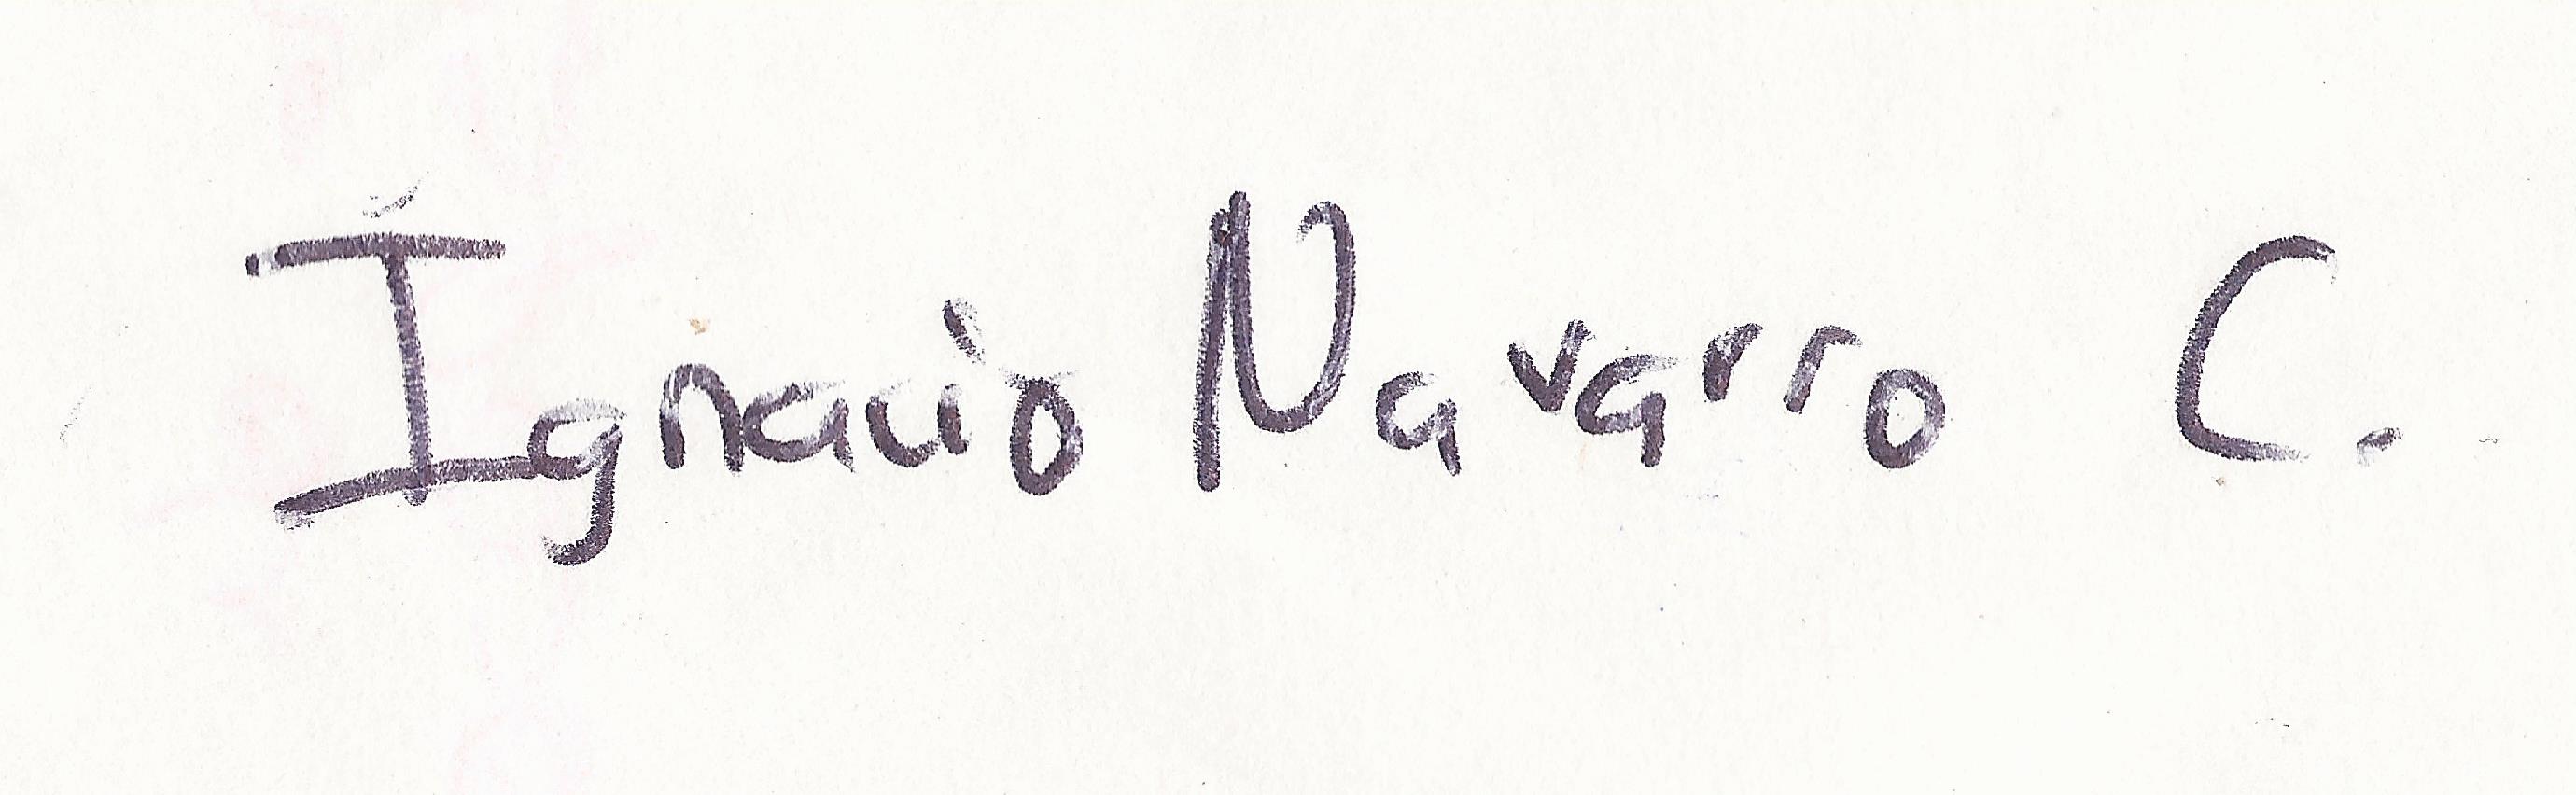 Ignacio Navarro C.